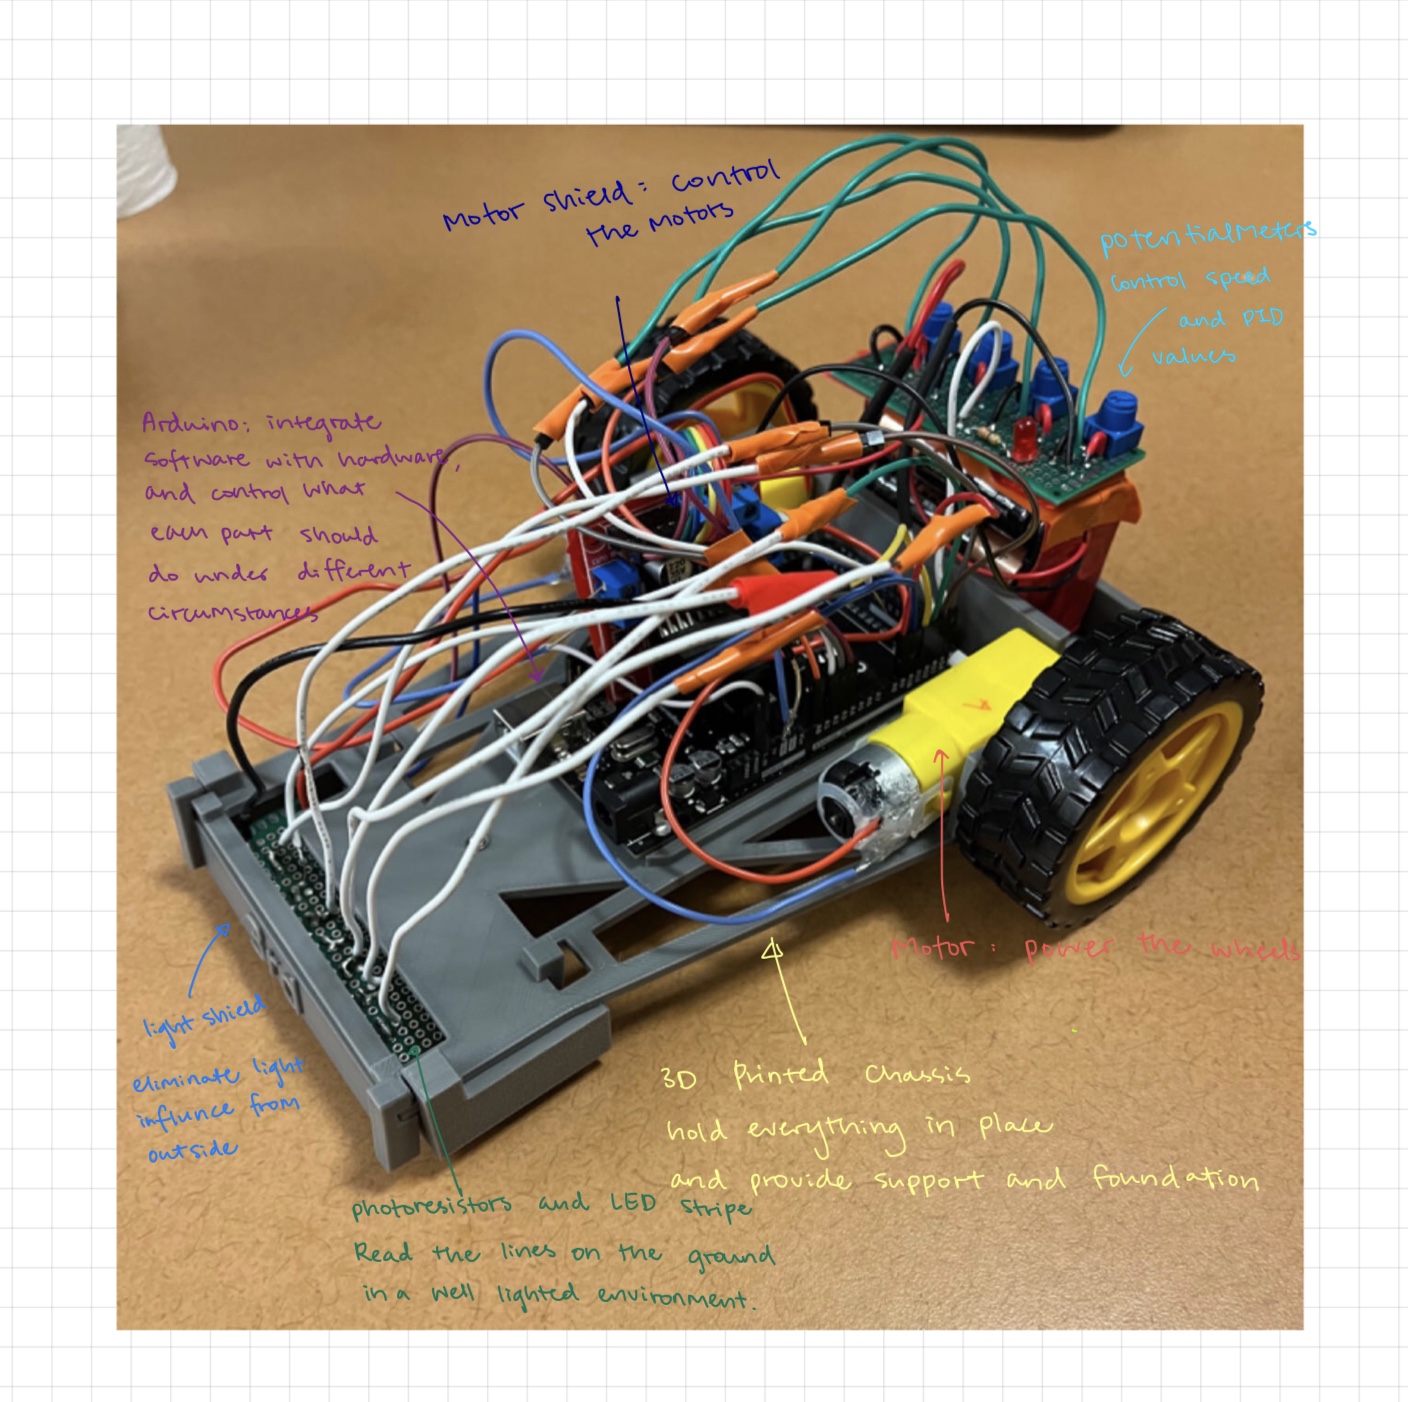 Motor shield: control
the Motors
potentialMeters
control speed
and PID
values
Arduino: integrate
software with hardware,
and control what
each part should
do under different
circumstances
Motor: power the wheels
light shield
eliminate light
influnce from
outside
3D Printed Chassis
hold everything in place
and provide support and foundation
photoresistors and LED stripe
Read the lines on the ground
in a well lighted environment.